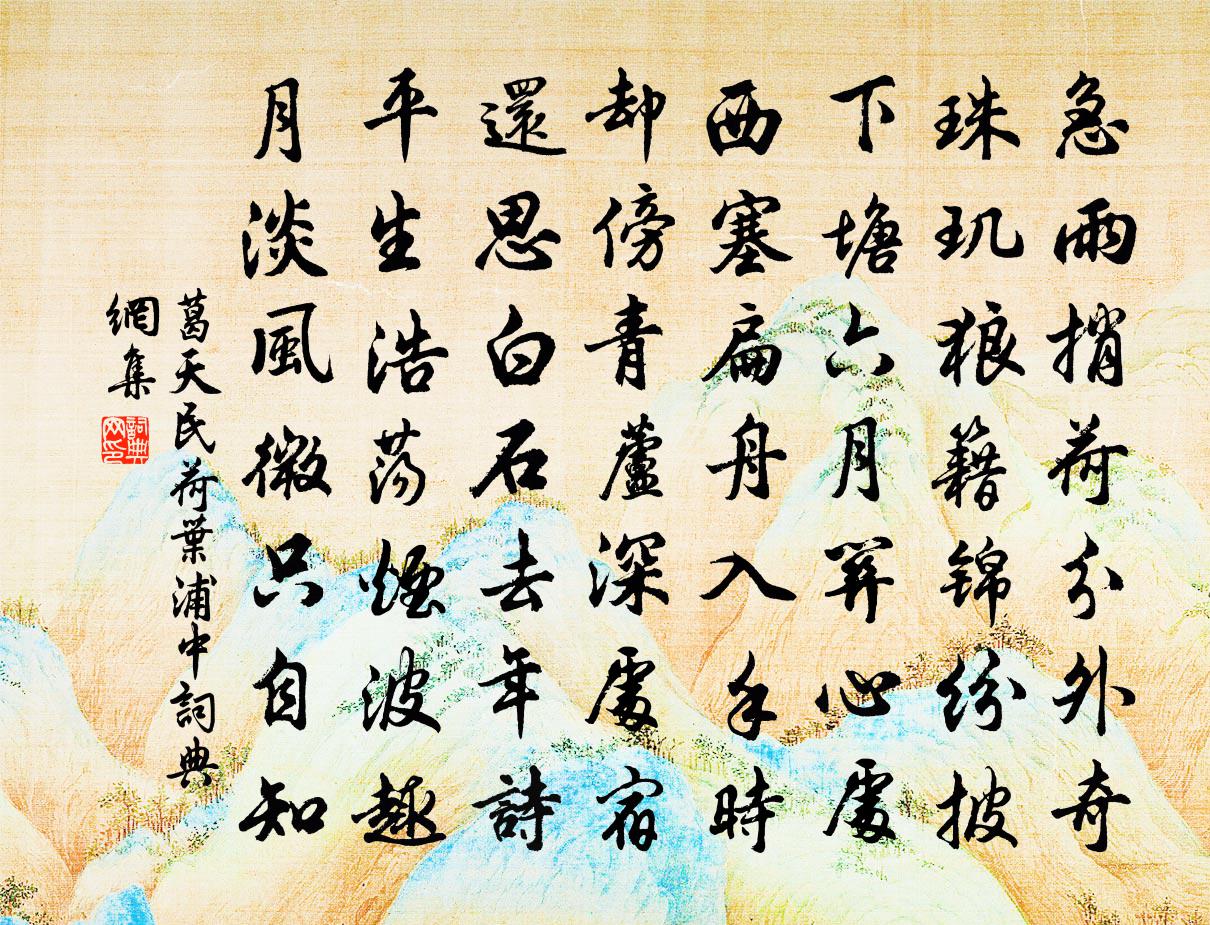 急雨捎荷分外奇
珠玑狼籍锦纷披
下塘六月开心處
西塞扁舟入手時
却傍青蘆深處宿
還思白石去年詩
平生浩荡煙波趣
月淡風微只自知
葛天民荷葉浦中詞典
網集
詞典